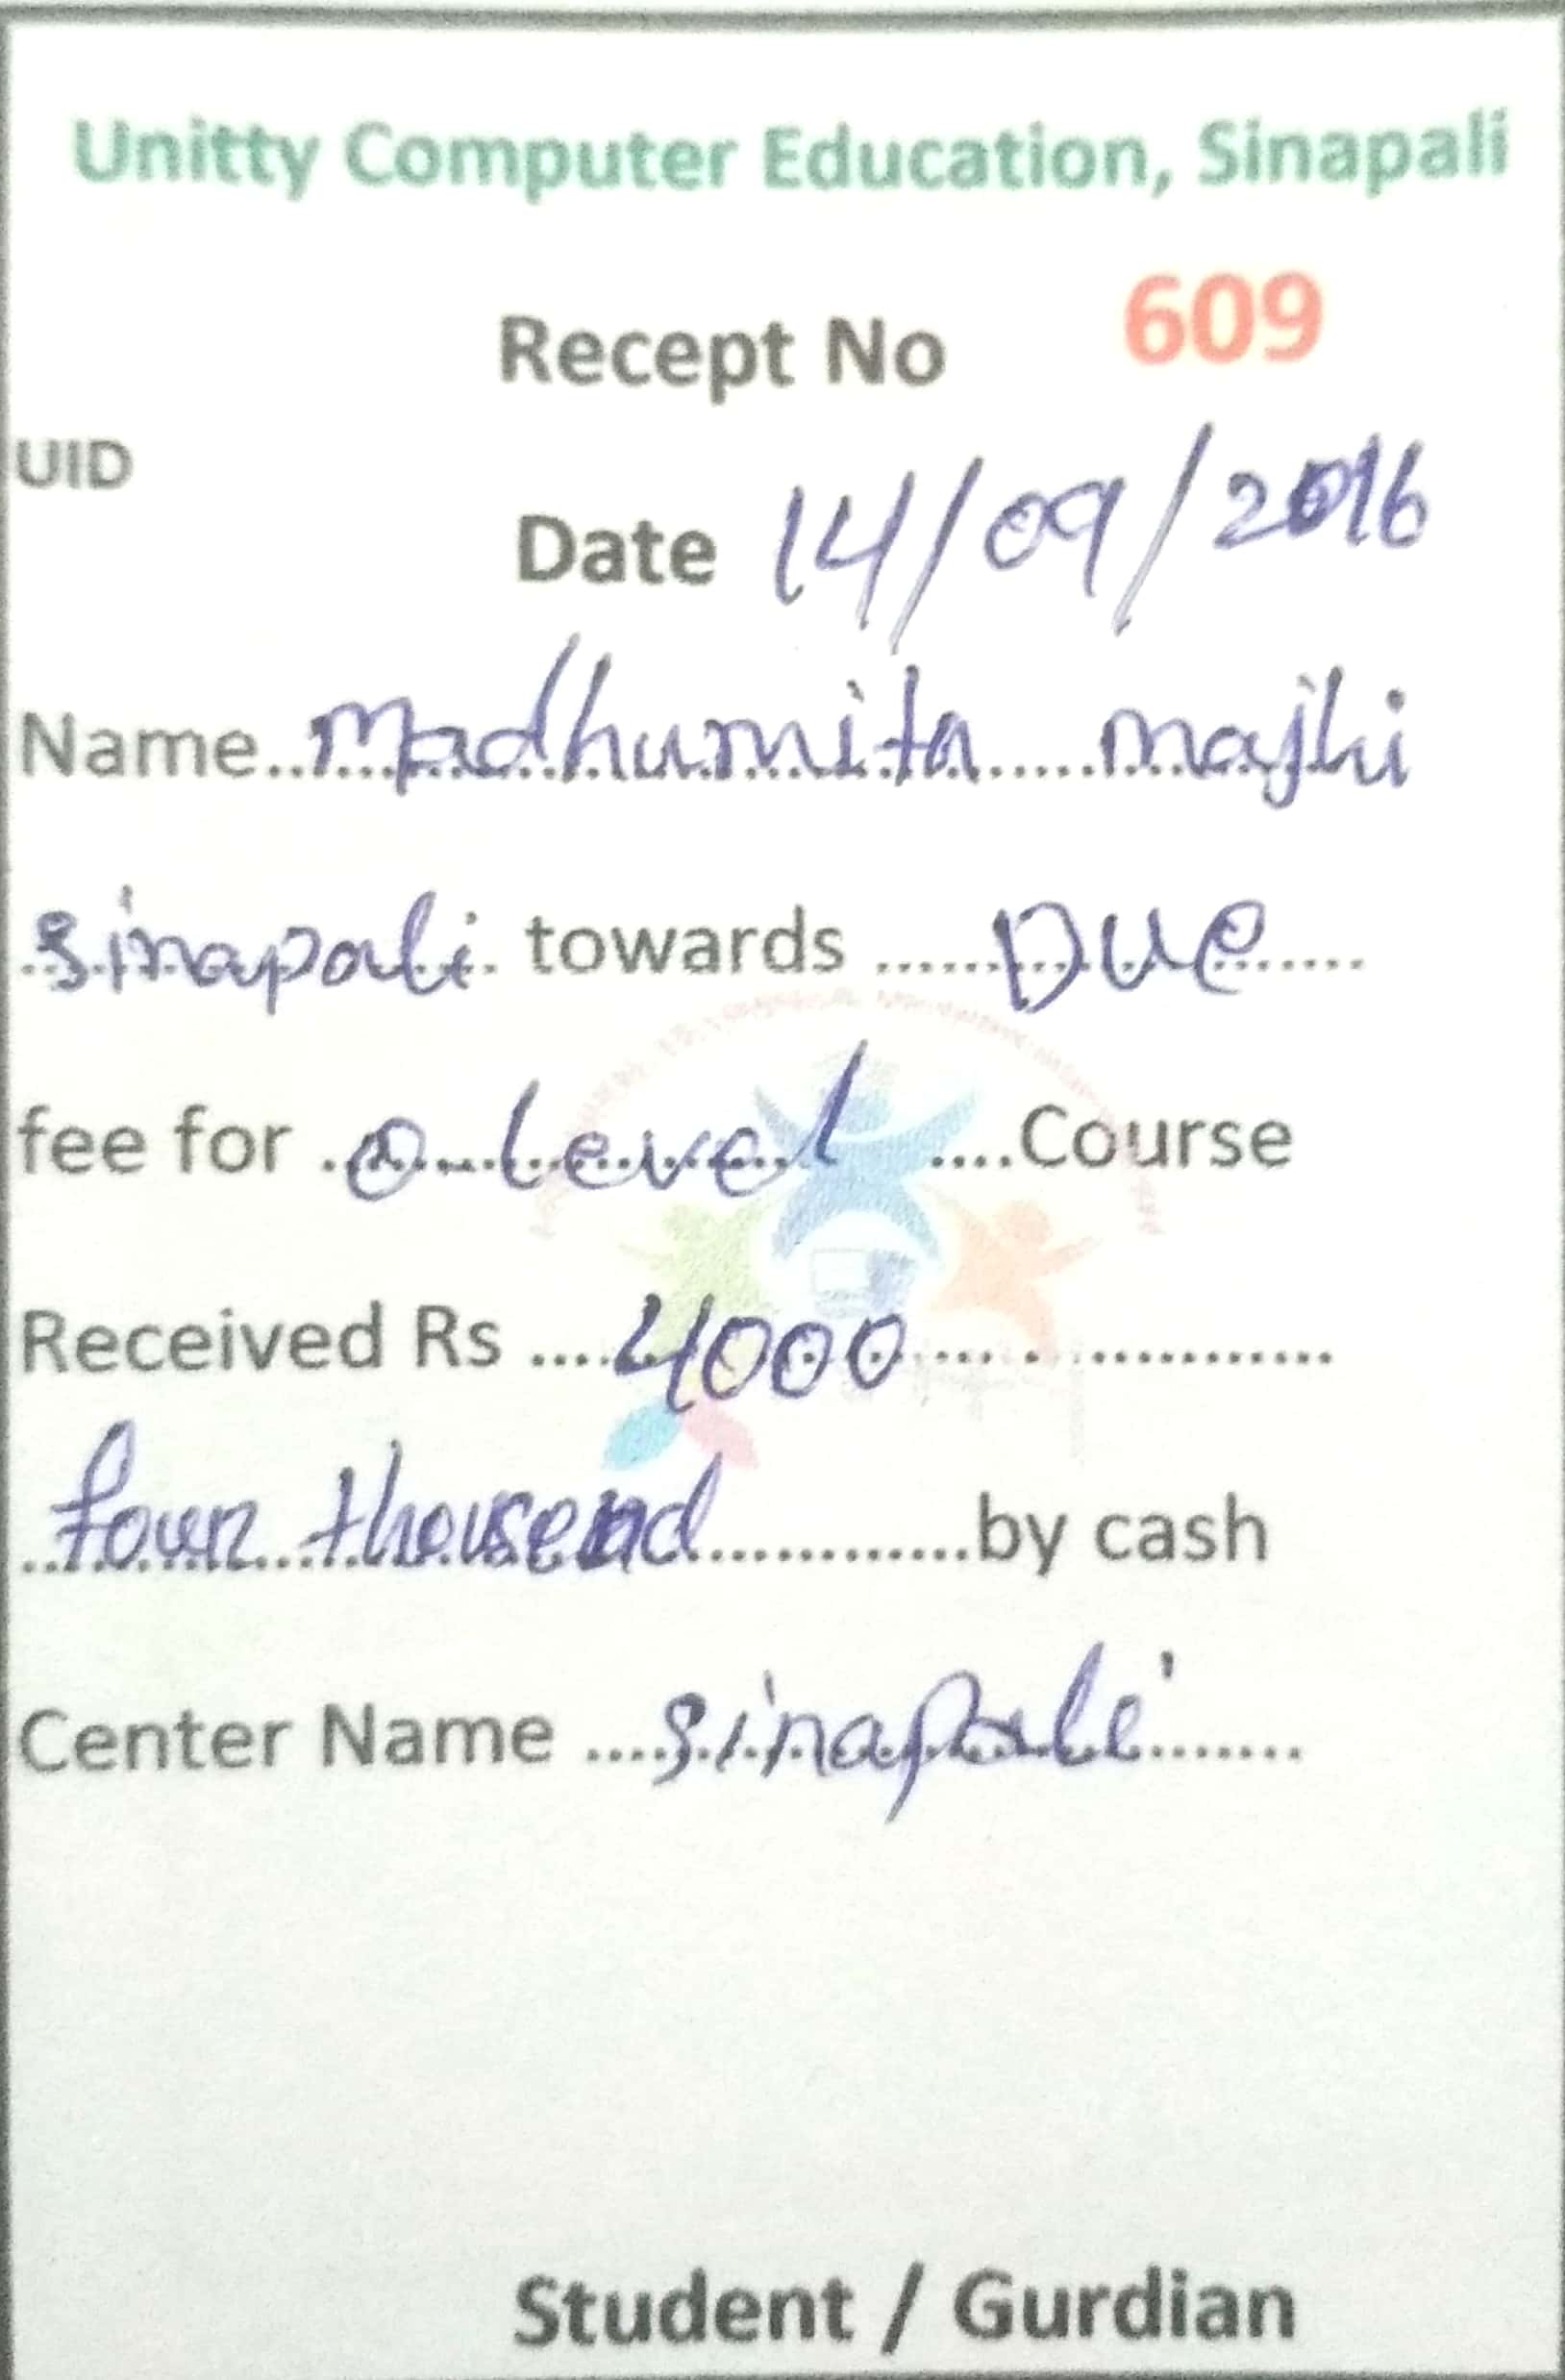 Unitty Computer Education, Sinapali
Recept No 609
UID
Date 14/09/2016
Name..Madhumita majhi
sinapali. towards ......Due.......
fee for .O-level ....Course
Received Rs ....4000.... . ..............
four thousend.............by cash
Center Name ....sinapali.......
Student / Gurdian